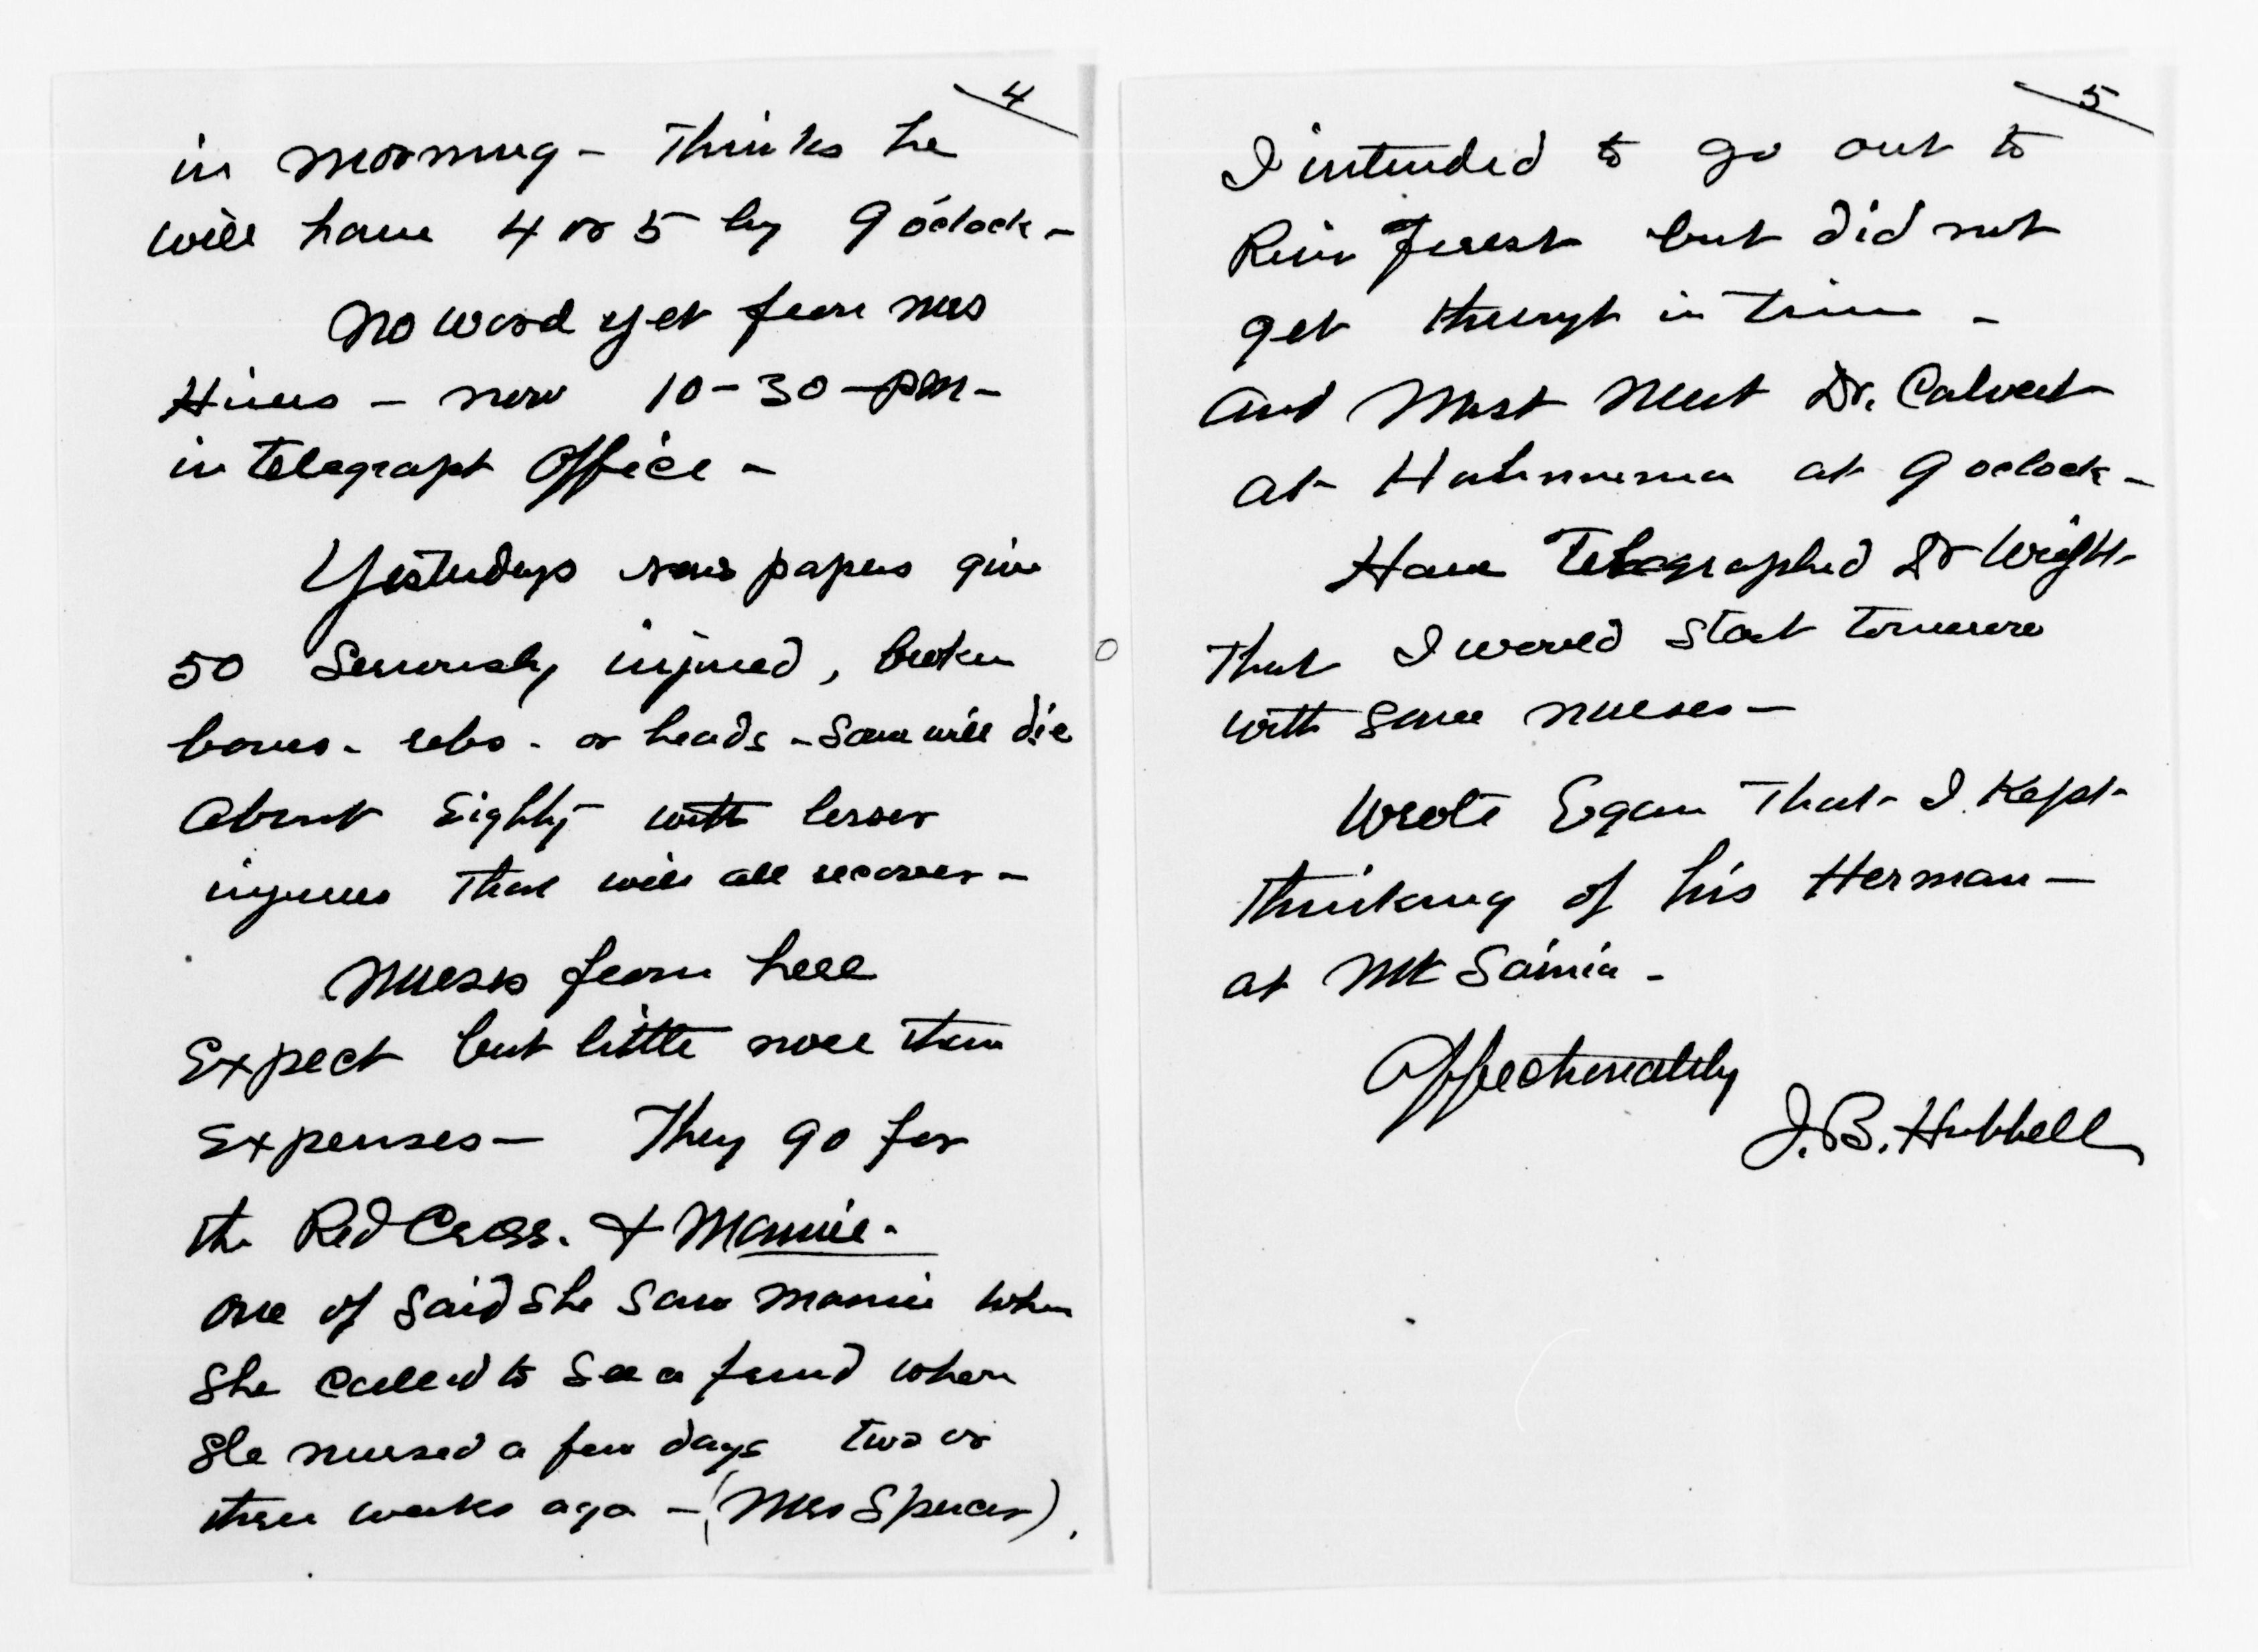 4
in morning - Thinks he
will have 4 or 5 by 9 o'clock -
No word yet from Mrs
Hines - now 10-30-pm-
in telegraph office -
Yesterdays news papers give
50 seriously injured, broken
bones - ribs - or heads - Some will die
About Eighty with lesser
injuries that will all recover -
Nurses from here
Expect but little more than
Expenses - They go for
the Red Cross. & Mamie.
One of said she saw Mamie when
She called to see a friend whom
She nursed a few days two or
three weeks ago - (Mrs Spencer).
5
I intended to go out to
River Forest but did not
get through in time -
And Must Meet Dr. Calvert
at Hahnneman at 9 oclock -
Have Telegraphed Dr Wright
That I would start tomorrow
with some nurses -
Wrote Egan That I Kept
thinking of his Herman -
at Mt
Affectionately
J. B. Hubbell